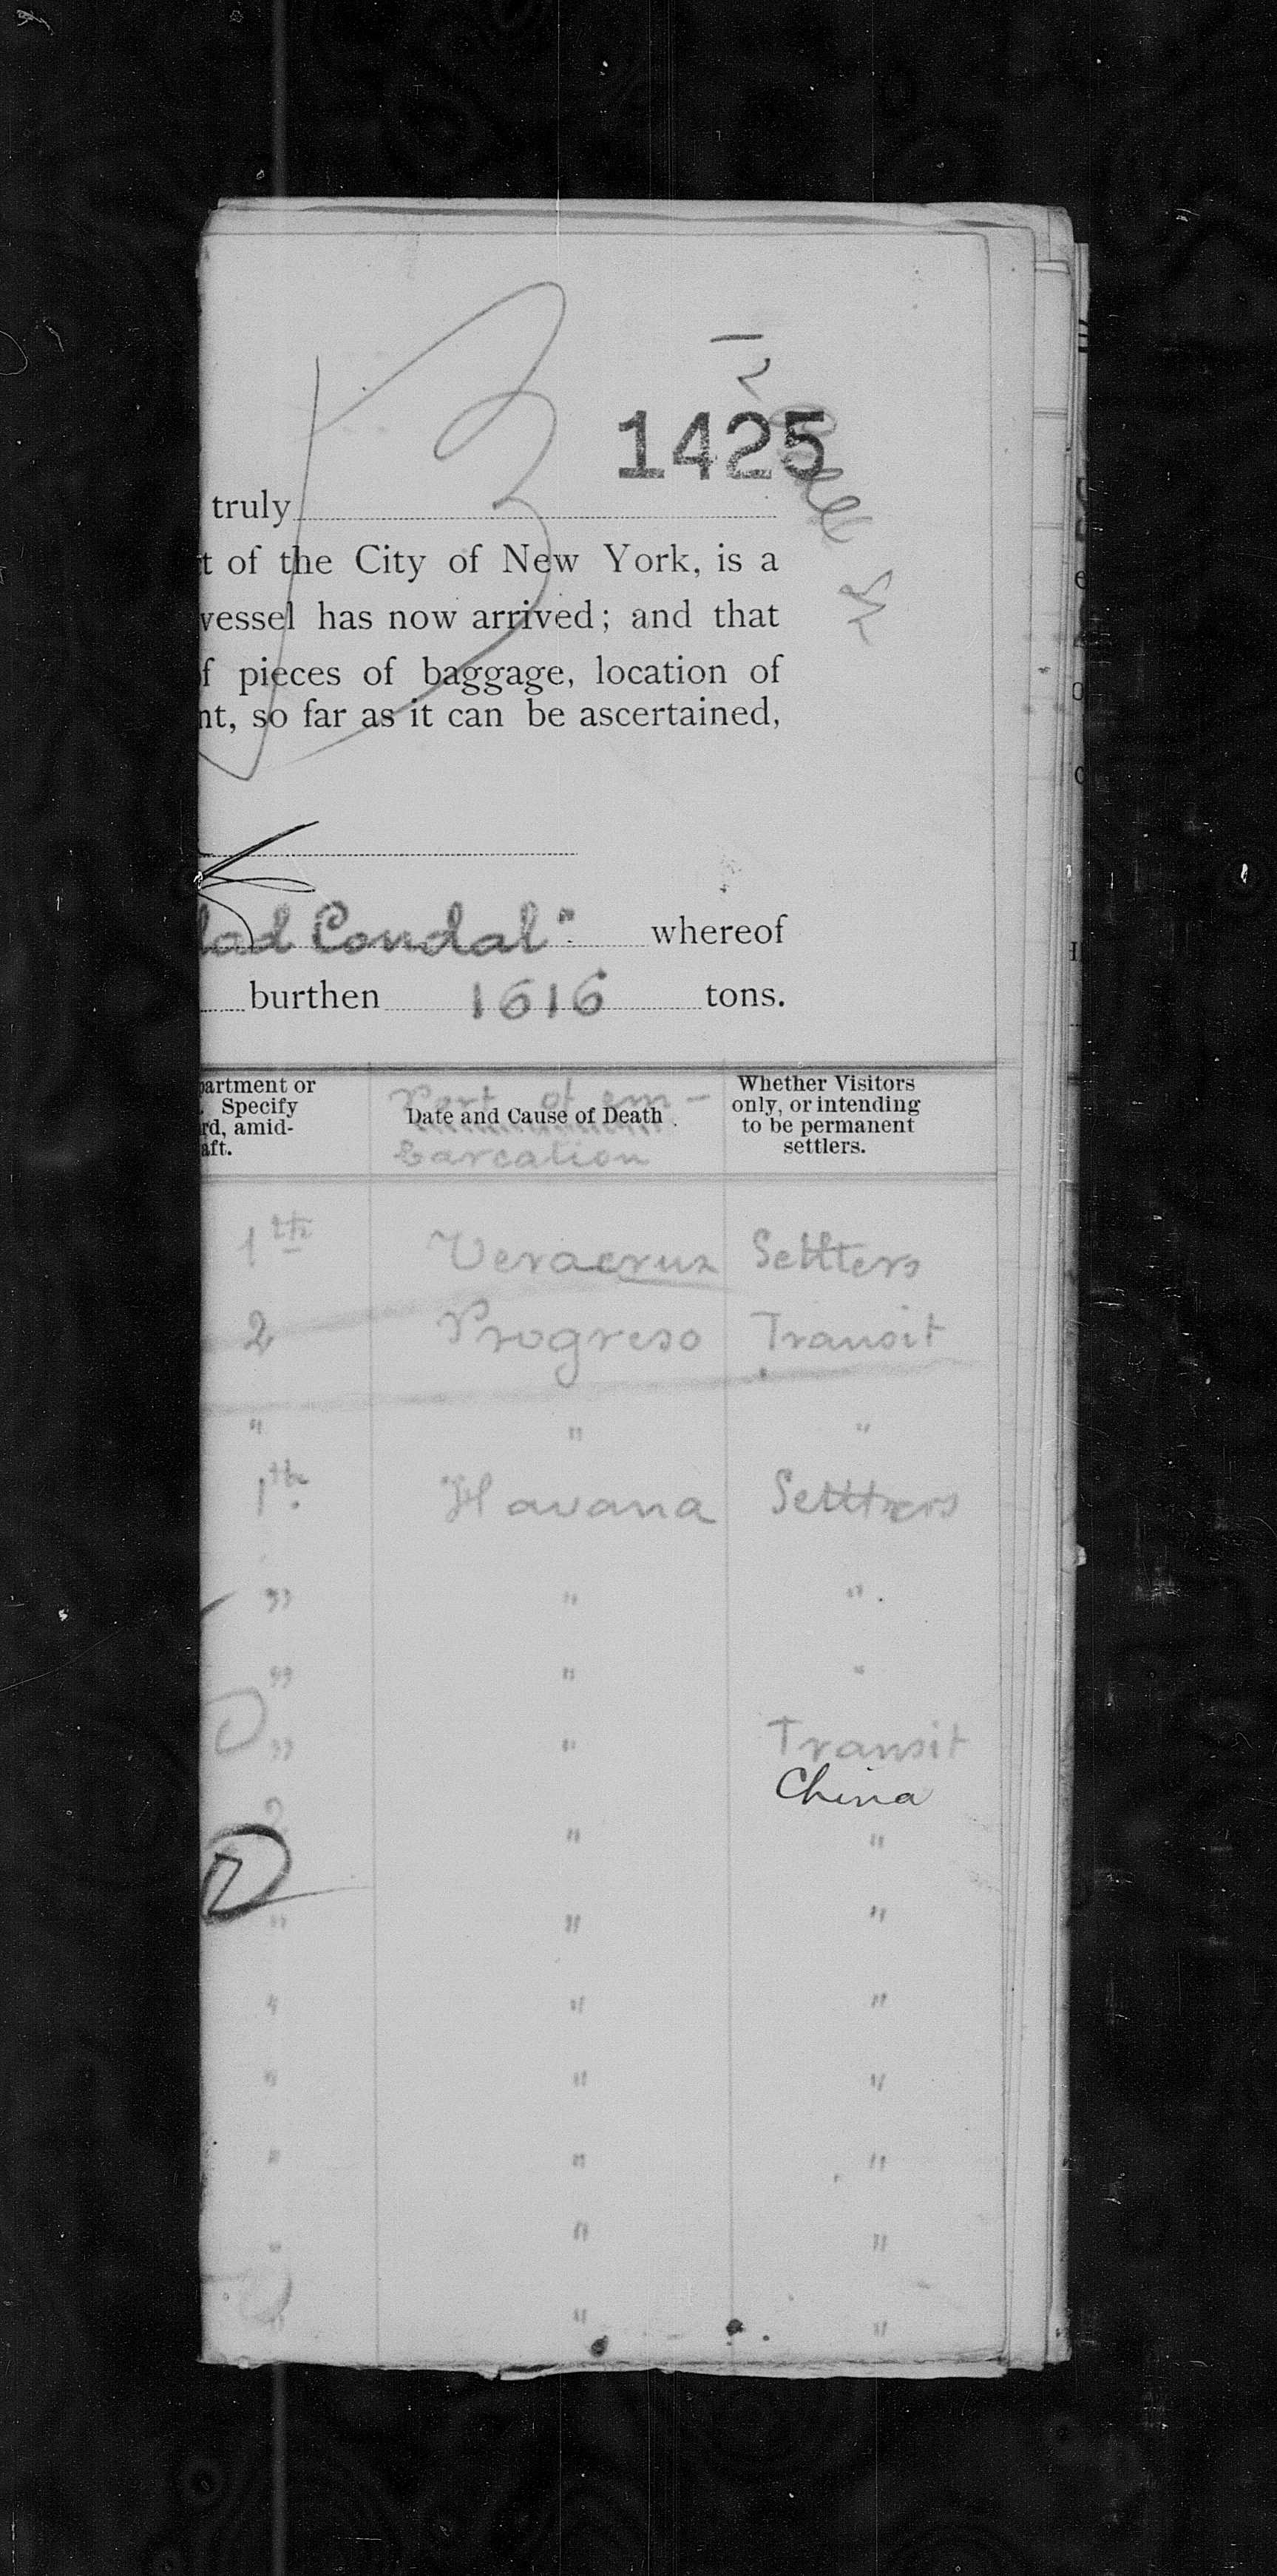 1425
truly
t of the City of New York, is a
vessel has now arrived; and that
f pieces of baggage, location of
nt, so far as it can be ascertained,
dad Condal" whereof
burthen 1616 tons.
partment or
. Specify
rd, amid-
aft.
Port of em-
Date and Cause of Death.
barcation
Whether Visitors
only, or intending
to be permanent
settlers.
1 Veracruz Settlers
2 Progreso Transit
" " "
1 Havana Settlers
" " "
" " "
" " Transit
China
" "
" " "
" " "
" " "
" " "
" " "
" " "